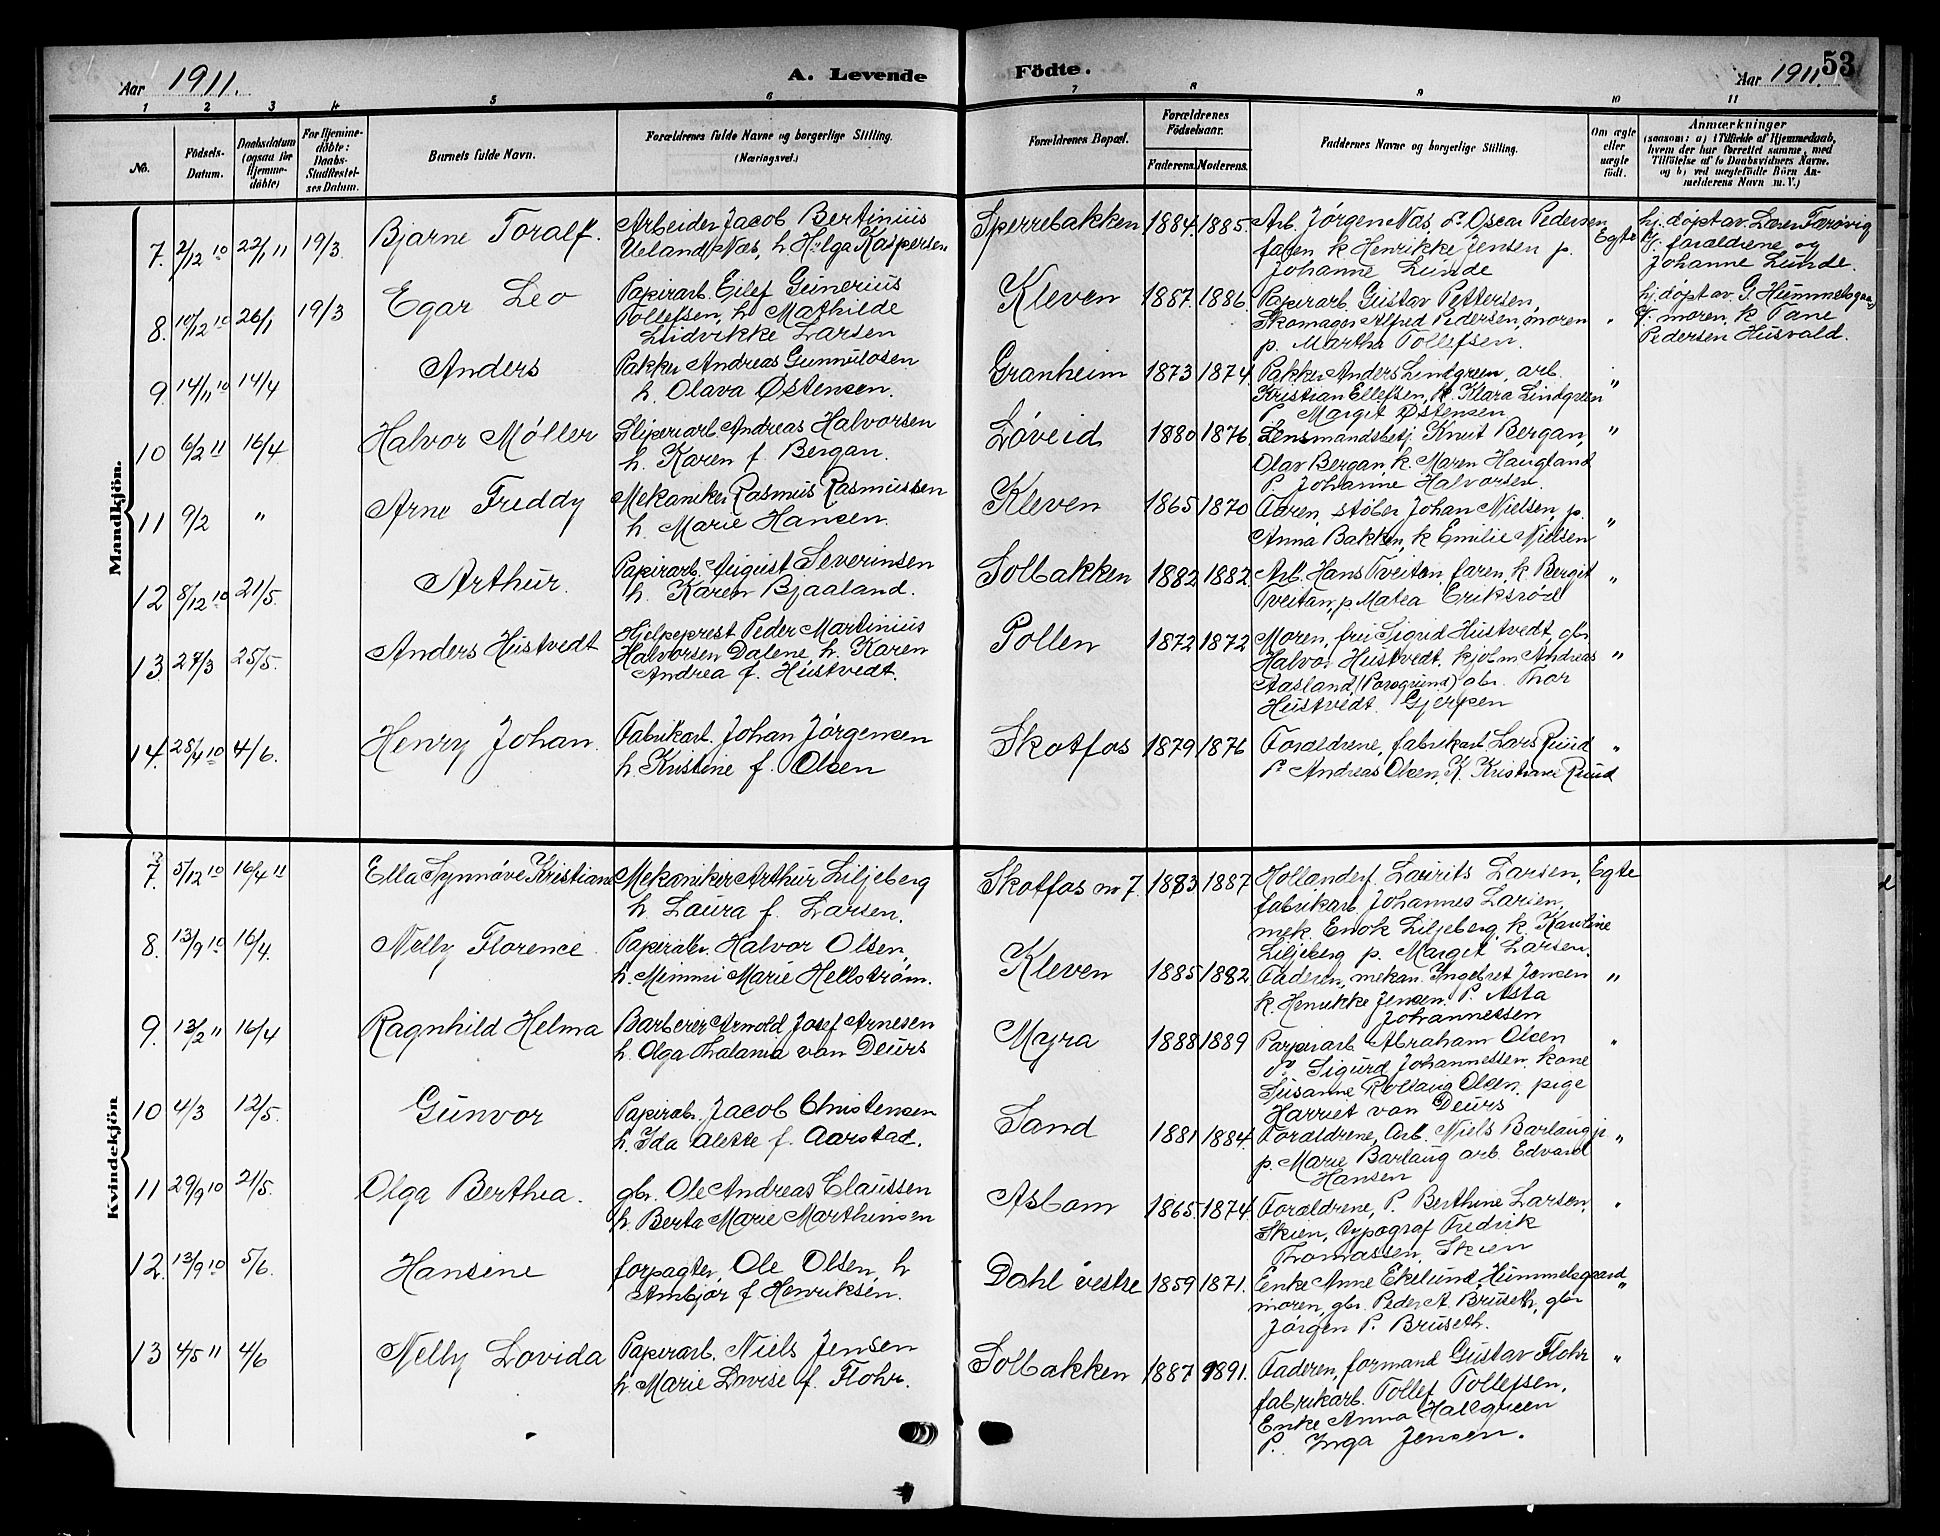 53
Aar 1911.
A. Levende
Födte.
Aar 1911.
1 2 3 4 5 6 7 8 9 10 11
No.
Födsels-Datum.
Daabsdatum (ogsaa for Hjemme-döbte)
For Hjemme-döbte: Daabs-Stadfæstel-ses Datum.
Barnets fulde Navn.
Forældrenes fulde Navne og borgerlige Stilling. (Næringsvei.)
Forældrenes Bopæl.
Forældrenes Födselsaar.
Faderens. Moderens.
Faddernes Navne og borgerlige Stilling.
Om ægte eller uægte födt.
Anmærkninger
(saasom: a) i Tilfælde af Hjemmedaab, hvem der har forrettet samme, med Tilföielse af to Daabsvidners Navne, og b) ved uægtefödte Börn An-melderens Navn m. V.)
Mandkjön.
7. 2/12 10 22/1 11 19/3. Bjarne Toralf. Arbeider Jacob Bertinius
Ueland Næs, h. Helga Kaspersen
Sperrebakken 1884. 1885. Arb. Jørgen Næs, do Oscar Pedersen
faren k Henrikke Jensen p.
Johanne Lunde
Egte
hj. døpt av Læren
forældrene og
Johanne Lunde.
8. 10/12 10 26/1 19/3 Egar Leo Papirarb. Eilef Geinerius
Tollefsen, h. Mathilde
Ludvikke Larsen
Kleven 1887. 1886. Papirarb. Gustav Pettersen,
Skomager Alfred Pedersen, moren
p. Martha Tollefsen.
"
hj. døpt av G.
moren, k Tane
Pedersen Husvald.
9. 14/11 10 14/4 Anders Pakker Andreas Gunnulosen
h. Olava Østensen.
Granheim 1873 1874. Pakker Anders Lindgreen, arb.
Kristian Ellefsen, k. Klara Lindgreen
p. Margit Østensen
"
10 6/2 11 16/4. Halvor Møller Sliperiarb. Andreas Halvorsen
h. Karen f. Bergan.
Løveid 1880 1876. Lensmandsbetj. Knut Bergan,
Olav Bergan, k. Maren Haugland
p. Johanne Halvorsen.
"
11 9/2 " Arne Freddy Mekaniker Rasmus Rasmussen
h. Marie Hansen.
Kleven 1865 1870 Faren, støber Johan Nielsen, p.
Anna Bakken, k Emilie Nielsen
"
12 8/12 10 21/5. Arthur. Papirarb. August Severinsen
h. Karen Bjaaland.
Solbakken 1882 1882. Arb. Hans Tveitan, faren, k. Bergit
Tveitan, p Matea Eriksrød
"
13. 27/3 25/5. Anders Hustvedt Hjelpeprest Peder Martinius
Halvorsen Dalene, h. Karen
Andrea f. Hustvedt.
Pollen 1872 1872 Moren, frøi Sigrid Hustvedt, gbr.
Halvor Hustvedt, kjøbm Andreas
Aasland (Porsgrund) gbr. Thor
Hustvedt. Gjerpen
"
14. 28/4 10 4/6. Henry Johan. Fabrikarb. Johan Jørgensen
h. Kristine f. Olsen
Skotfos 1879 1876 Forældrene, fabrikarb Lars Ruud
p. Andreas Olsen, K. Kristiane Ruud
"
Kvindekjön
7. 5/12 10 16/4 11 Ella Synnøve Kristiane Mekaniker Arthur Liljeberg
h. Laura f. Larsen.
Skotfos nr 7. 1883 1887 Hollenderf. Laurits Larsen,
fabrikarb. Johannes Larsen,
mek. Enok Liljeberg, k. Karoline
Liljeberg p. Margit Larsen.
Egte
8. 13/9 10 16/4. Nelly Florence. Papirarb. Halvor Olsen,
h. Mimmi Marie Hellstrøm.
Kleven 1885 1882 Faderen, mekan. Ingebret Jensen
k. Henrikke Jensen. P. Asta
Johannessen
"
9. 13/2 11 16/4 Ragnhild Helma Barberer Arnold Josef Arnesen
h. Olga Thalama van Deurs
Myra 1888 1889 Papirarb Abraham Olsen
do Sigurd Johannessen. kone
Susanne Rollaug Olsen, pige
Harriet van Deurs
"
10 4/3 12/5. Gunvor Papirarb. Jacob Christensen
h. Ida Alette f. Aarstad.
Sand 1881 1884. Forældrene, Arb. Niels Barlaug p.
p. Marie Barlaug arb. Edvard
Hansen
"
11 29/9 10 21/5. Olga Berthea. gbr. Ole Andreas Claussen
h. Berta Marie Marthinsen
Asbom 1865. 1874. Forældrene, P. Berthine Larsen,
Skien, Typograf Fredrik
Thomassen, Skien
"
12. 13/9 10 5/6. Hansine forpagter, Ole Olsen, h
Ambjør f Henriksen.
Dahl vestre 1859 1871. Enke Anne Ekelund, Hummelsgaard
moren, gbr. Peder A. Bruseth, gbr
Jørgen P. Bruseth.
"
13 4/5 11 4/6 Nelly Lovida Papirarb. Niels Jensen
h. Marie Lovise f. Flohr.
Solbakken 1887 1891. Faderen, formand Gustav Flohr
fabrikarb. Tollef Tollefsen.
Enke Anna Hallgreen
P. Inga Jensen.
"